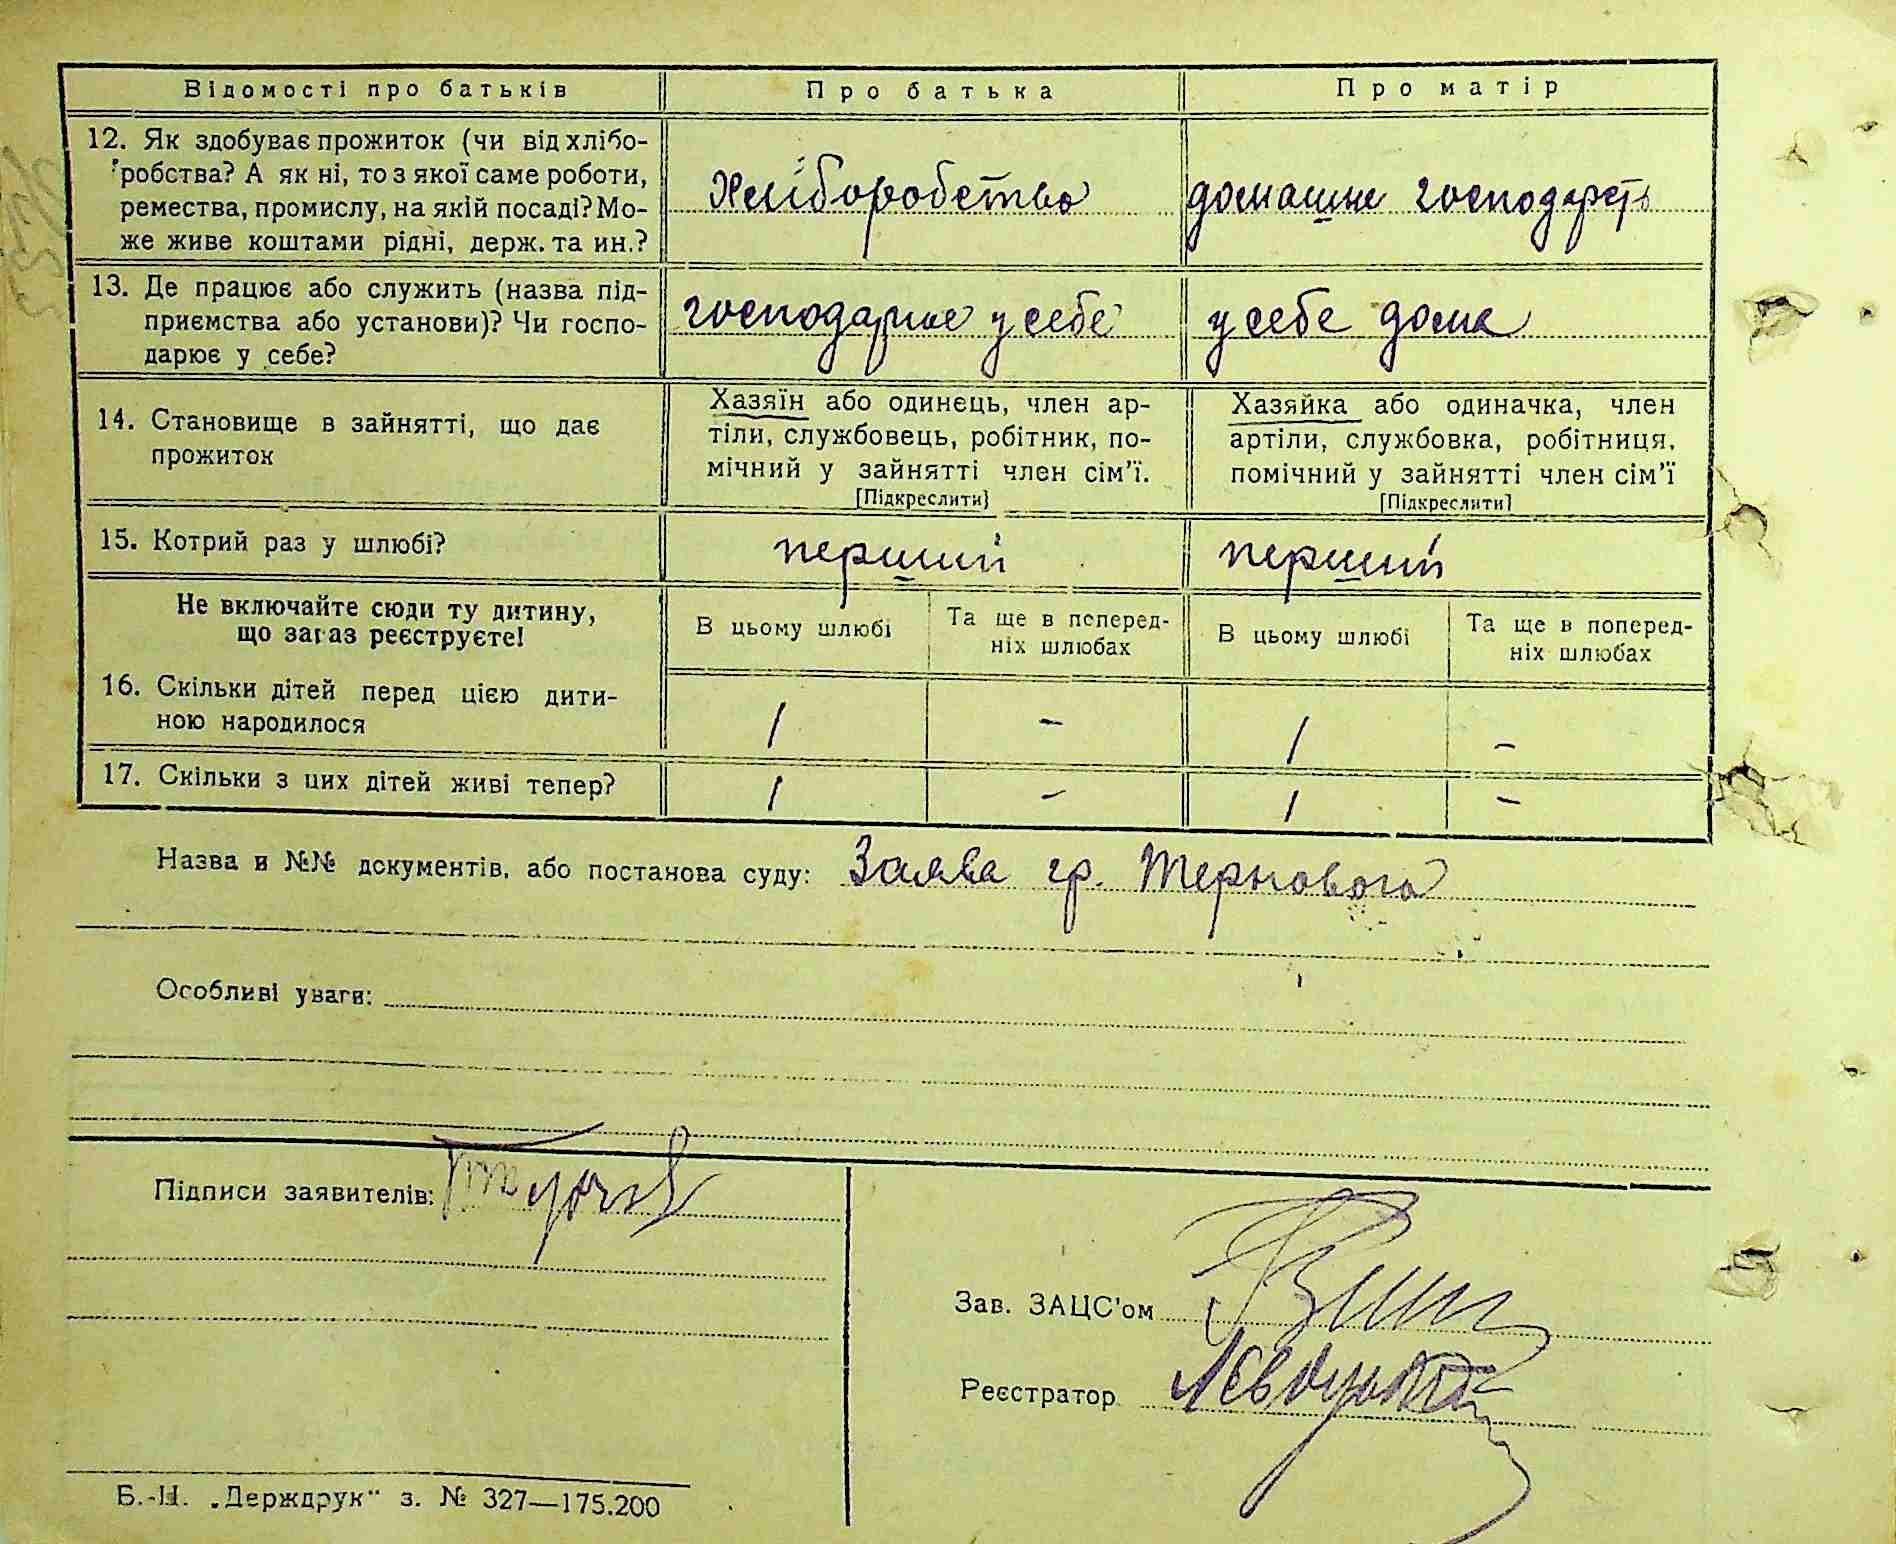 Відомості про батьків Про батька Про матір
12. Як здобуває прожиток (чи від хлібо-
робства? А як ні, то з якої саме роботи,
ремества, промислу, на якій посаді? Мо-
же живе коштами рідні, держ. та ин.?
Хліборобство домашне господарств
13. Де працює або служить (назва під-
приємства або установи)? Чи госпо-
дарює у себе?
господарює у себе у себе дома
14. Становище в зайнятті, що дає
прожиток
Хазяїн або одинець, член ар-
тіли, службовець, робітник, по-
мічний у зайнятті член сім'ї.
[Підкреслити]
Хазяйка або одиначка, член
артіли, службовка, робітниця,
помічний у зайнятті член сім'ї
[Підкреслити]
15. Котрий раз у шлюбі? перший перший
Не включайте сюди ту дитину,
що зараз реєструєте!
В цьому шлюбі
Та ще в поперед-
ніх шлюбах
В цьому шлюбі
Та ще в поперед-
ніх шлюбах
16. Скільки дітей перед цією дити-
ною народилося
1 - 1 -
17. Скільки з цих дітей живі тепер? 1 - 1 -
Назва и №№ документів, або постанова суду: Заява гр. Тернового
Особливі уваги:
Підписи заявителів:
Зав. ЗАЦС'ом
Реєстратор
Б.-Ц. „Держдрук" з. № 327—175.200